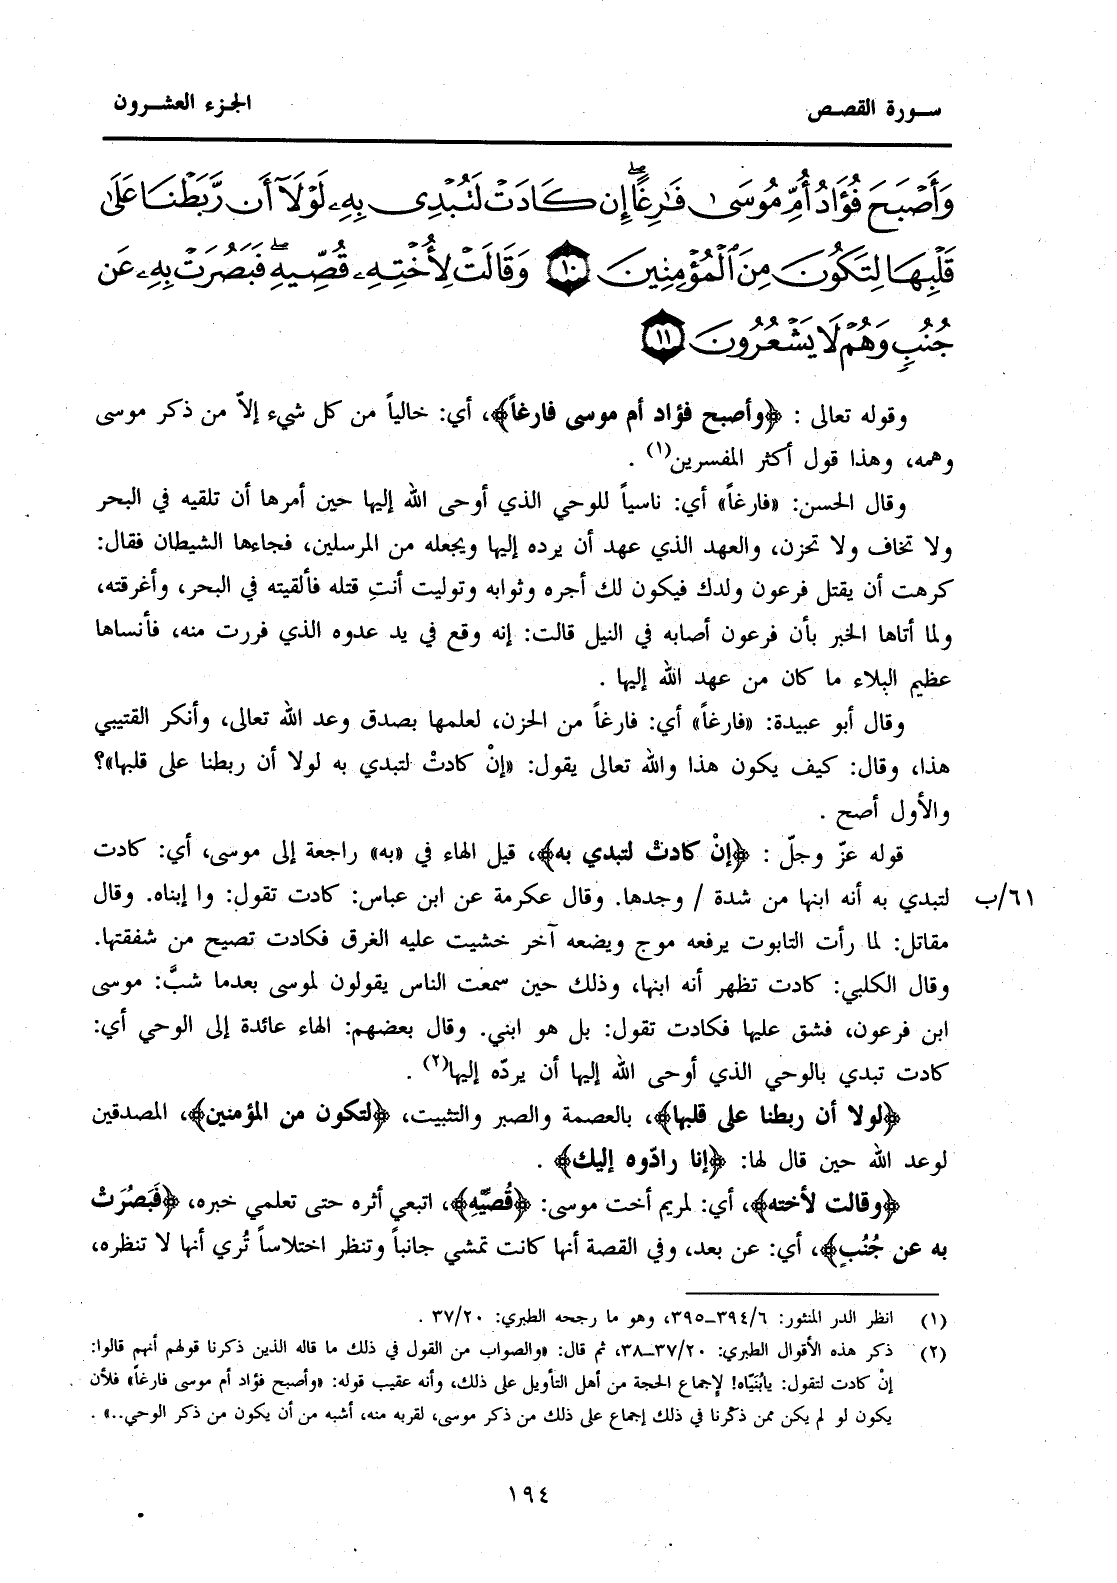 سـورة القصـص
الجـزء العشـرون
وَأَصْبَحَ فُؤَادُ أُمِّ مُوسَىٰ فَٰرِغًا ۖ إِن كَادَتْ لَتُبْدِى بِهِۦ لَوْلَآ أَن رَّبَطْنَا عَلَىٰ
قَلْبِهَا لِتَكُونَ مِنَ ٱلْمُؤْمِنِينَ ١٠ وَقَالَتْ لِأُخْتِهِۦ قُصِّيهِ ۖ فَبَصُرَتْ بِهِۦ عَن
جُنُبٍ وَهُمْ لَا يَشْعُرُونَ ١١
وقوله تعالى : ﴿وأصبح فؤاد أم موسى فارغاً﴾، أي: خالياً من كل شيء إلاّ من ذكر موسى
وهمه، وهذا قول أكثر المفسرين(١) .
وقال الحسن: «فارغاً» أي: ناسياً للوحي الذي أوحى الله إليها حين أمرها أن تلقيه في البحر
ولا تخاف ولا تحزن، والعهد الذي عهد أن يرده إليها ويجعله من المرسلين، فجاءها الشيطان فقال:
كرهت أن يقتل فرعون ولدك فيكون لك أجره وثوابه وتوليت أنتِ قتله فألقيته في البحر، وأغرقته،
ولما أتاها الخبر بأن فرعون أصابه في النيل قالت: إنه وقع في يد عدوه الذي فررت منه، فأنساها
عظيم البلاء ما كان من عهد الله إليها .
وقال أبو عبيدة: «فارغاً» أي: فارغاً من الحزن، لعلمها بصدق وعد الله تعالى، وأنكر القتيبي
هذا، وقال: كيف يكون هذا والله تعالى يقول: «إنْ كادتْ لتبدي به لولا أن ربطنا على قلبها»؟
والأول أصح .
قوله عزّ وجلّ : ﴿إنْ كادتْ لتبدي به﴾، قيل الهاء في «به» راجعة إلى موسى، أي: كادت
لتبدي به أنه ابنها من شدة / وجدها. وقال عكرمة عن ابن عباس: كادت تقول: وا إبناه. وقال ٦١/ب
مقاتل: لما رأت التابوت يرفعه موج ويضعه آخر خشيت عليه الغرق فكادت تصيح من شفقتها.
وقال الكلبي: كادت تظهر أنه ابنها، وذلك حين سمعت الناس يقولون لموسى بعدما شبَّ: موسى
ابن فرعون، فشق عليها فكادت تقول: بل هو ابني. وقال بعضهم: الهاء عائدة إلى الوحي أي:
كادت تبدي بالوحي الذي أوحى الله إليها أن يردّه إليها(٢) .
﴿لولا أن ربطنا على قلبها﴾، بالعصمة والصبر والتثبيت، ﴿لتكون من المؤمنين﴾، المصدقين
لوعد الله حين قال لها: ﴿إنا رادّوه إليك﴾ .
﴿وقالت لأخته﴾، أي: لمريم أخت موسى: ﴿قُصِّيْهِ﴾، اتبعي أثره حتى تعلمي خبره، ﴿فَبَصُرَتْ
به عن جُنُبٍ﴾، أي: عن بعد، وفي القصة أنها كانت تمشي جانباً وتنظر اختلاساً تُري أنها لا تنظره،
(١) انظر الدر المنثور: ٣٩٤/٦ـ٣٩٥، وهو ما رجحه الطبري: ٣٧/٢٠ .
(٢) ذكر هذه الأقوال الطبري: ٣٧/٢٠ـ٣٨، ثم قال: «والصواب من القول في ذلك ما قاله الذين ذكرنا قولهم أنهم قالوا:
إنْ كادت لتقول: يابُنَيّاه! لإجماع الحجة من أهل التأويل على ذلك، وأنه عقيب قوله: «وأصبح فؤاد أم موسى فارغاً» فلأن
يكون لو لم يكن ممن ذكرنا في ذلك إجماع على ذلك من ذكر موسى، لقربه منه، أشبه من أن يكون من ذكر الوحي..» .
١٩٤